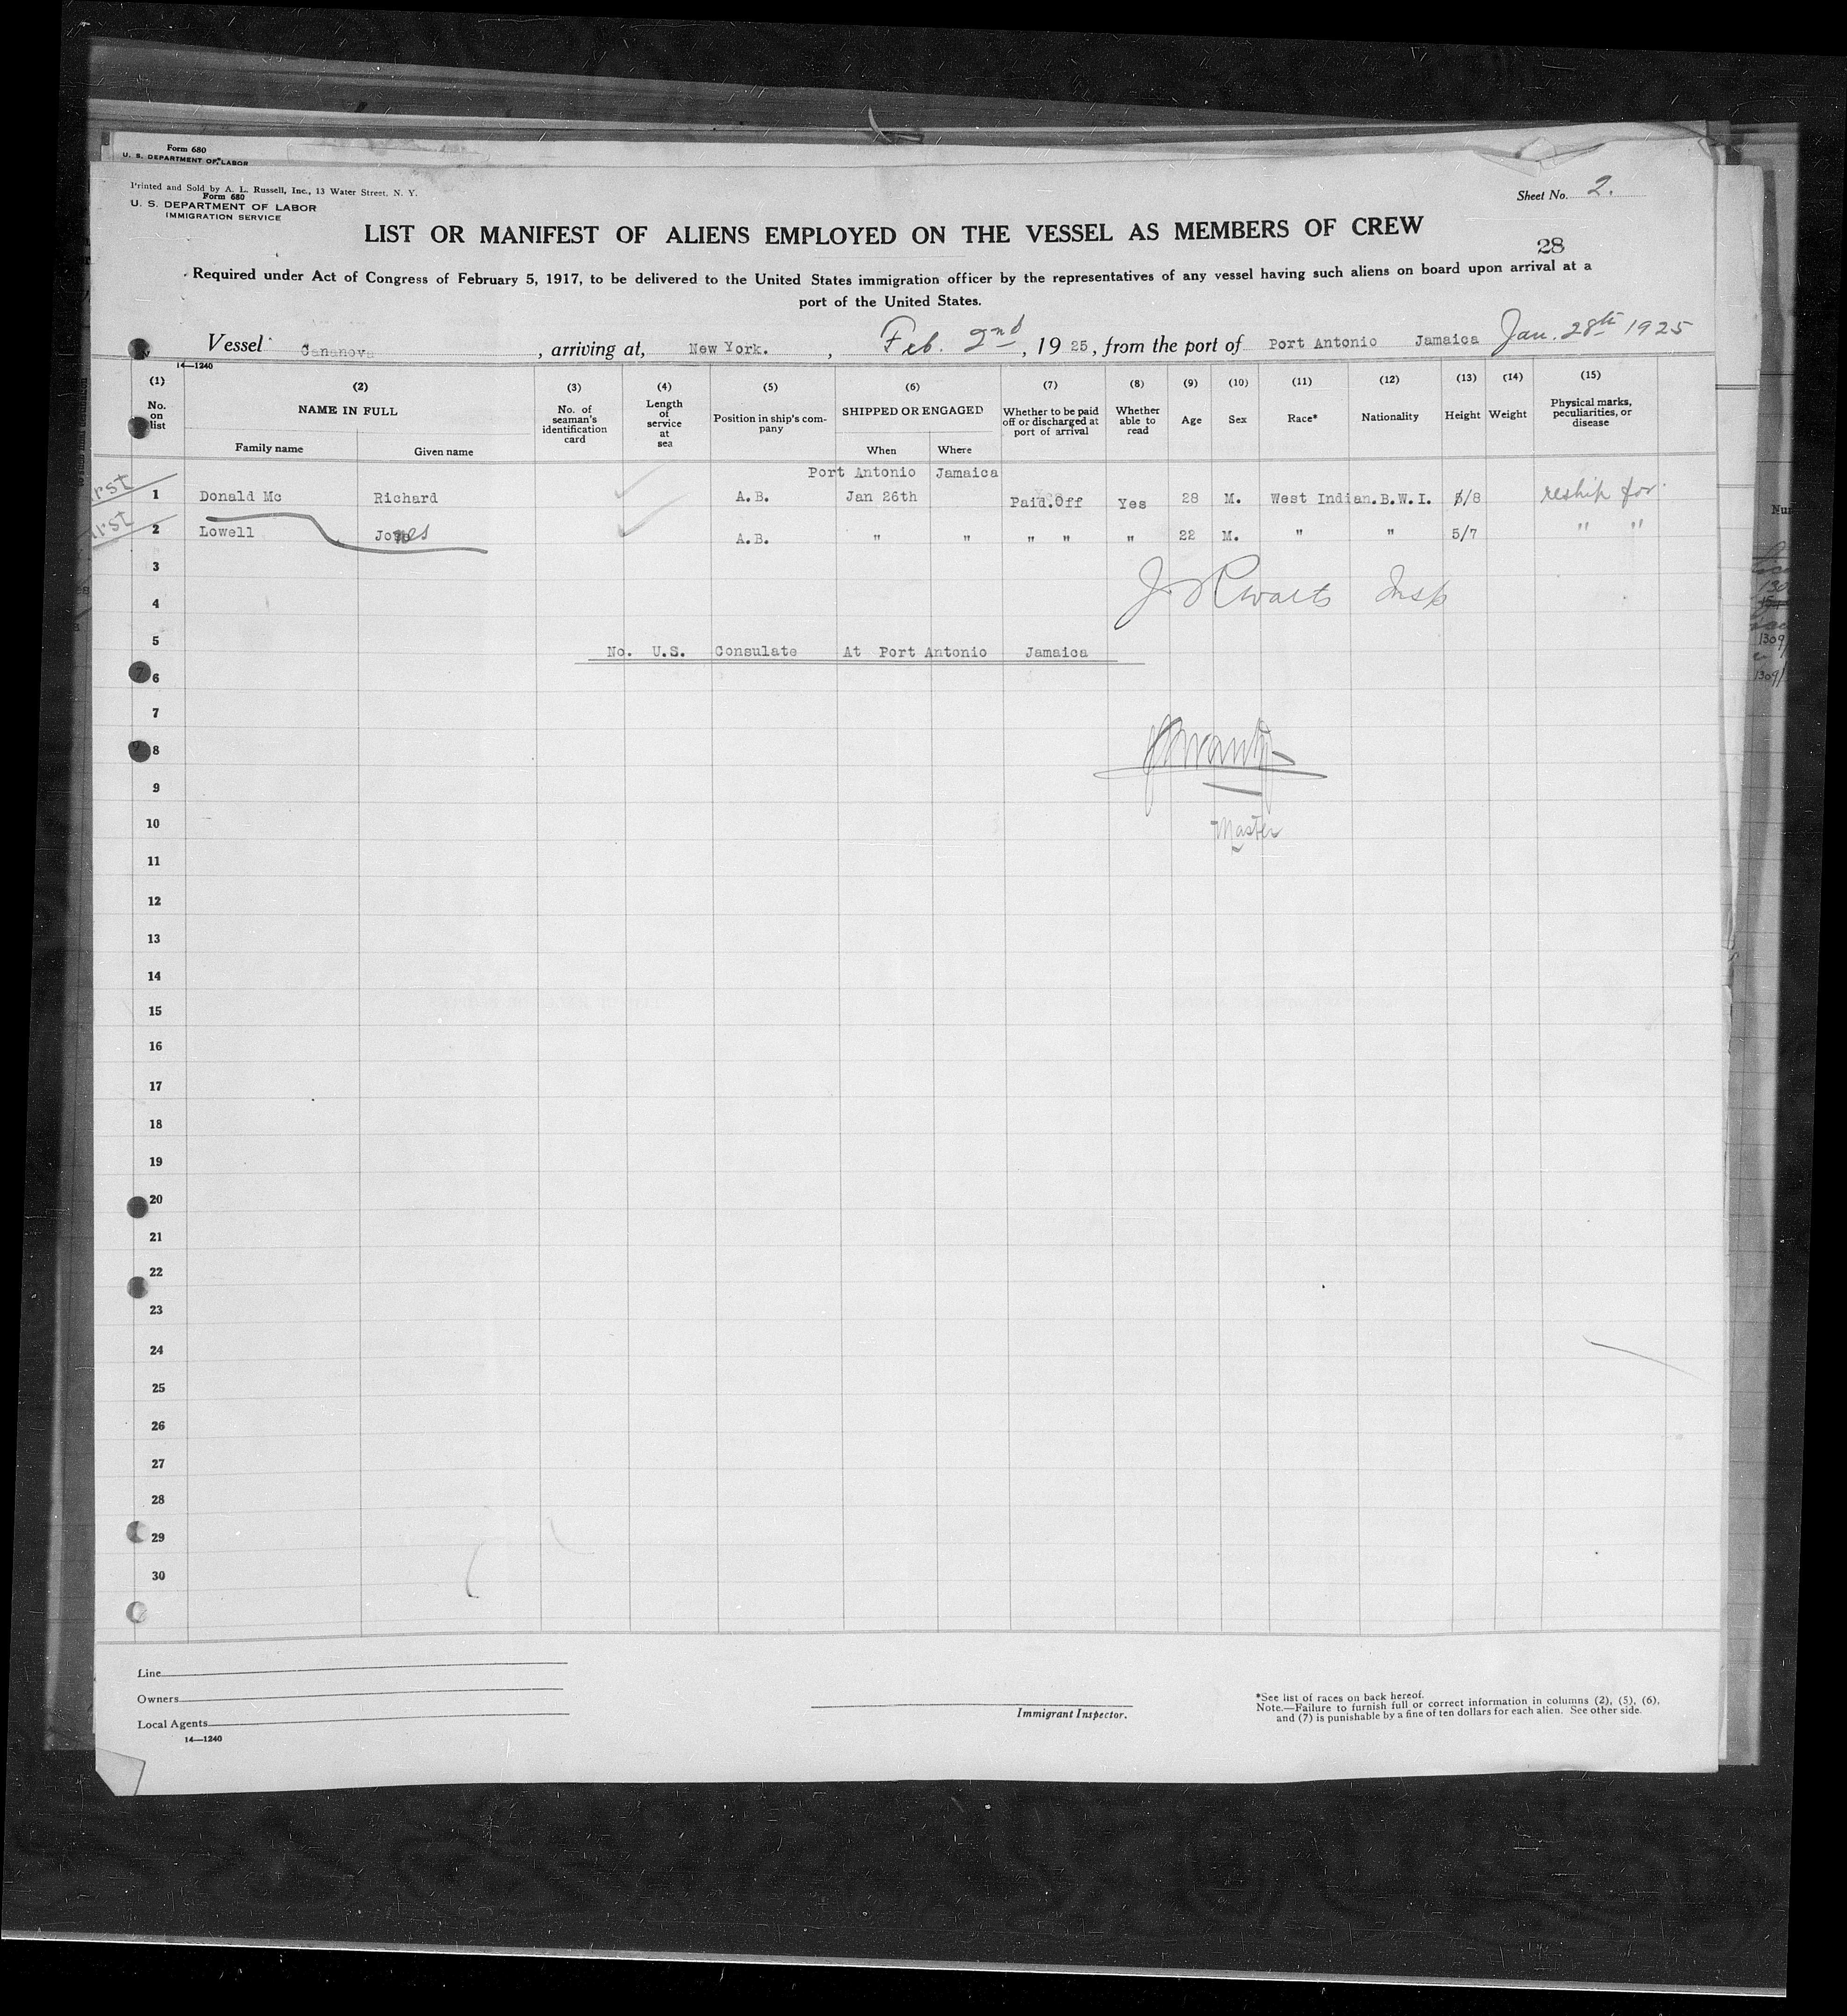 Form 680
U. S. DEPARTMENT OF LABOR
Printed and Sold by A. L. Russell, Inc., 13 Water Street, N. Y.
Form 680
U. S. DEPARTMENT OF LABOR
IMMIGRATION SERVICE
Sheet No. 2.
LIST OR MANIFEST OF ALIENS EMPLOYED ON THE VESSEL AS MEMBERS OF CREW
28
Required under Act of Congress of February 5, 1917, to be delivered to the United States immigration officer by the representatives of any vessel having such aliens on board upon arrival at a
port of the United States.
Vessel Cananova, arriving at, New York., Feb. 2nd, 1925, from the port of Port Antonio Jamaica Jan. 28th 1925
14—1240
(1) (2) (3) (4) (5) (6) (7) (8) (9) (10) (11) (12) (13) (14) (15)
No. on list NAME IN FULL No. of seaman's identification card Length of service at sea Position in ship's company SHIPPED OR ENGAGED Whether to be paid off or discharged at port of arrival Whether able to read Age Sex Race* Nationality Height Weight Physical marks, peculiarities, or disease
Family name Given name When Where
Port Antonio Jamaica
1 Donald Mc Richard A.B. Jan 26th Paid.Off Yes 28 M. West Indian. B.W.I. 5/8 reship for.
2 Lowell Jones A.B. " " " " " 22 M. " " 5/7 " "
3
4
Insp
5
No. U.S. Consulate At Port Antonio Jamaica
6
7
8
9
10
Master
11
12
13
14
15
16
17
18
19
20
21
22
23
24
25
26
27
28
29
30
Line
Owners
Local Agents
14—1240
Immigrant Inspector.
*See list of races on back hereof.
Note.—Failure to furnish full or correct information in columns (2), (5), (6),
and (7) is punishable by a fine of ten dollars for each alien. See other side.